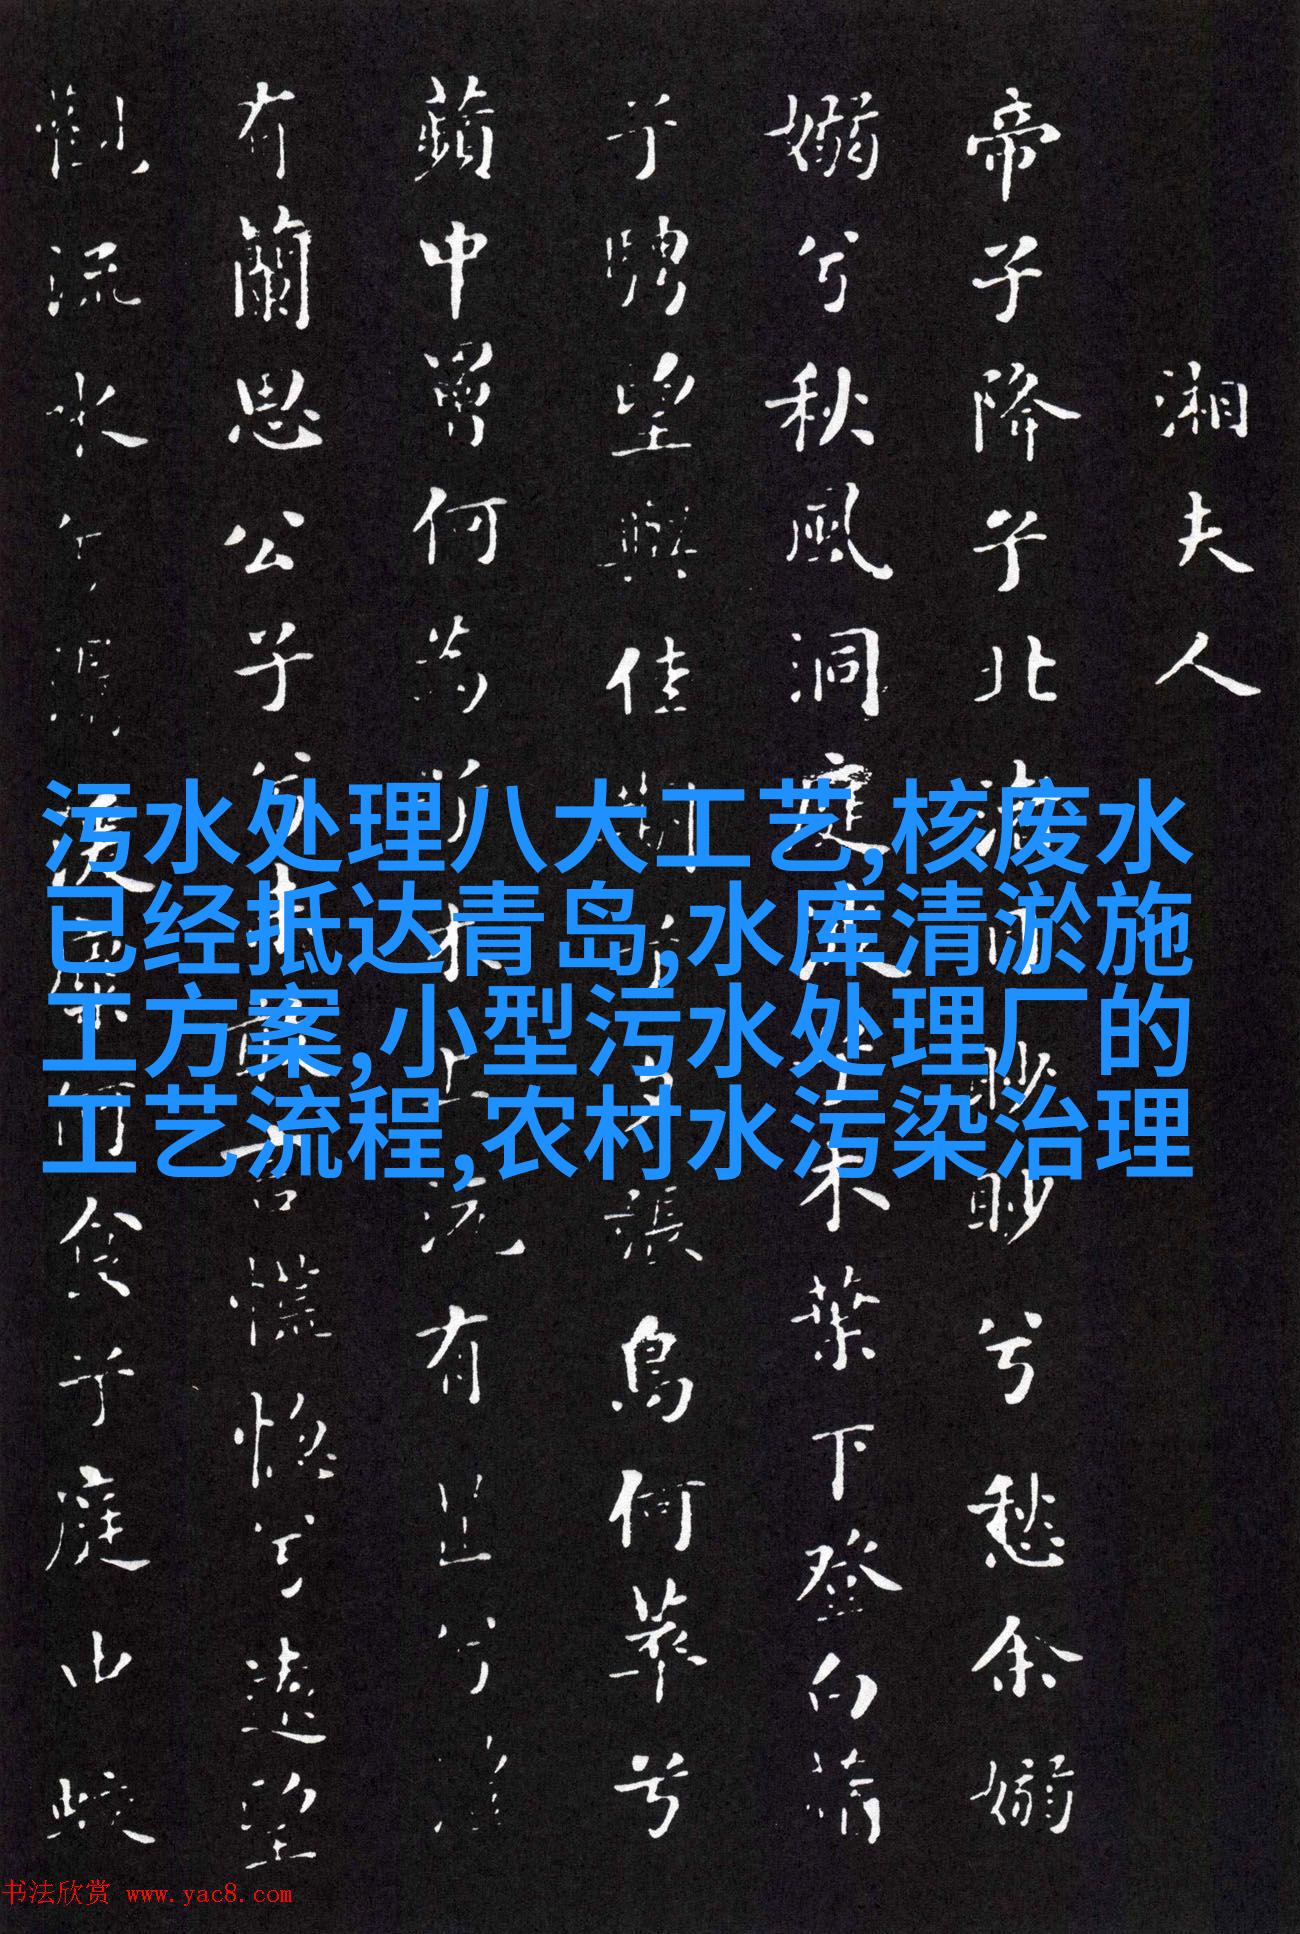 湘夫人
帝子降兮北渚目眇眇兮愁余嫋
嫋兮秋風洞庭波兮木葉下登白
兮騁望與佳期兮夕張鳥何萃兮
蘋中罾何為兮木上沅有芷兮
有蘭思公子兮未敢言慌惚兮遠望
觀流水兮潺湲麋何食兮庭中蛟
污水处理八大工艺,核废水
已经抵达青岛,水库清淤施
工方案,小型污水处理厂的
工艺流程,农村水污染治理
书法欣赏 www.yac8.com